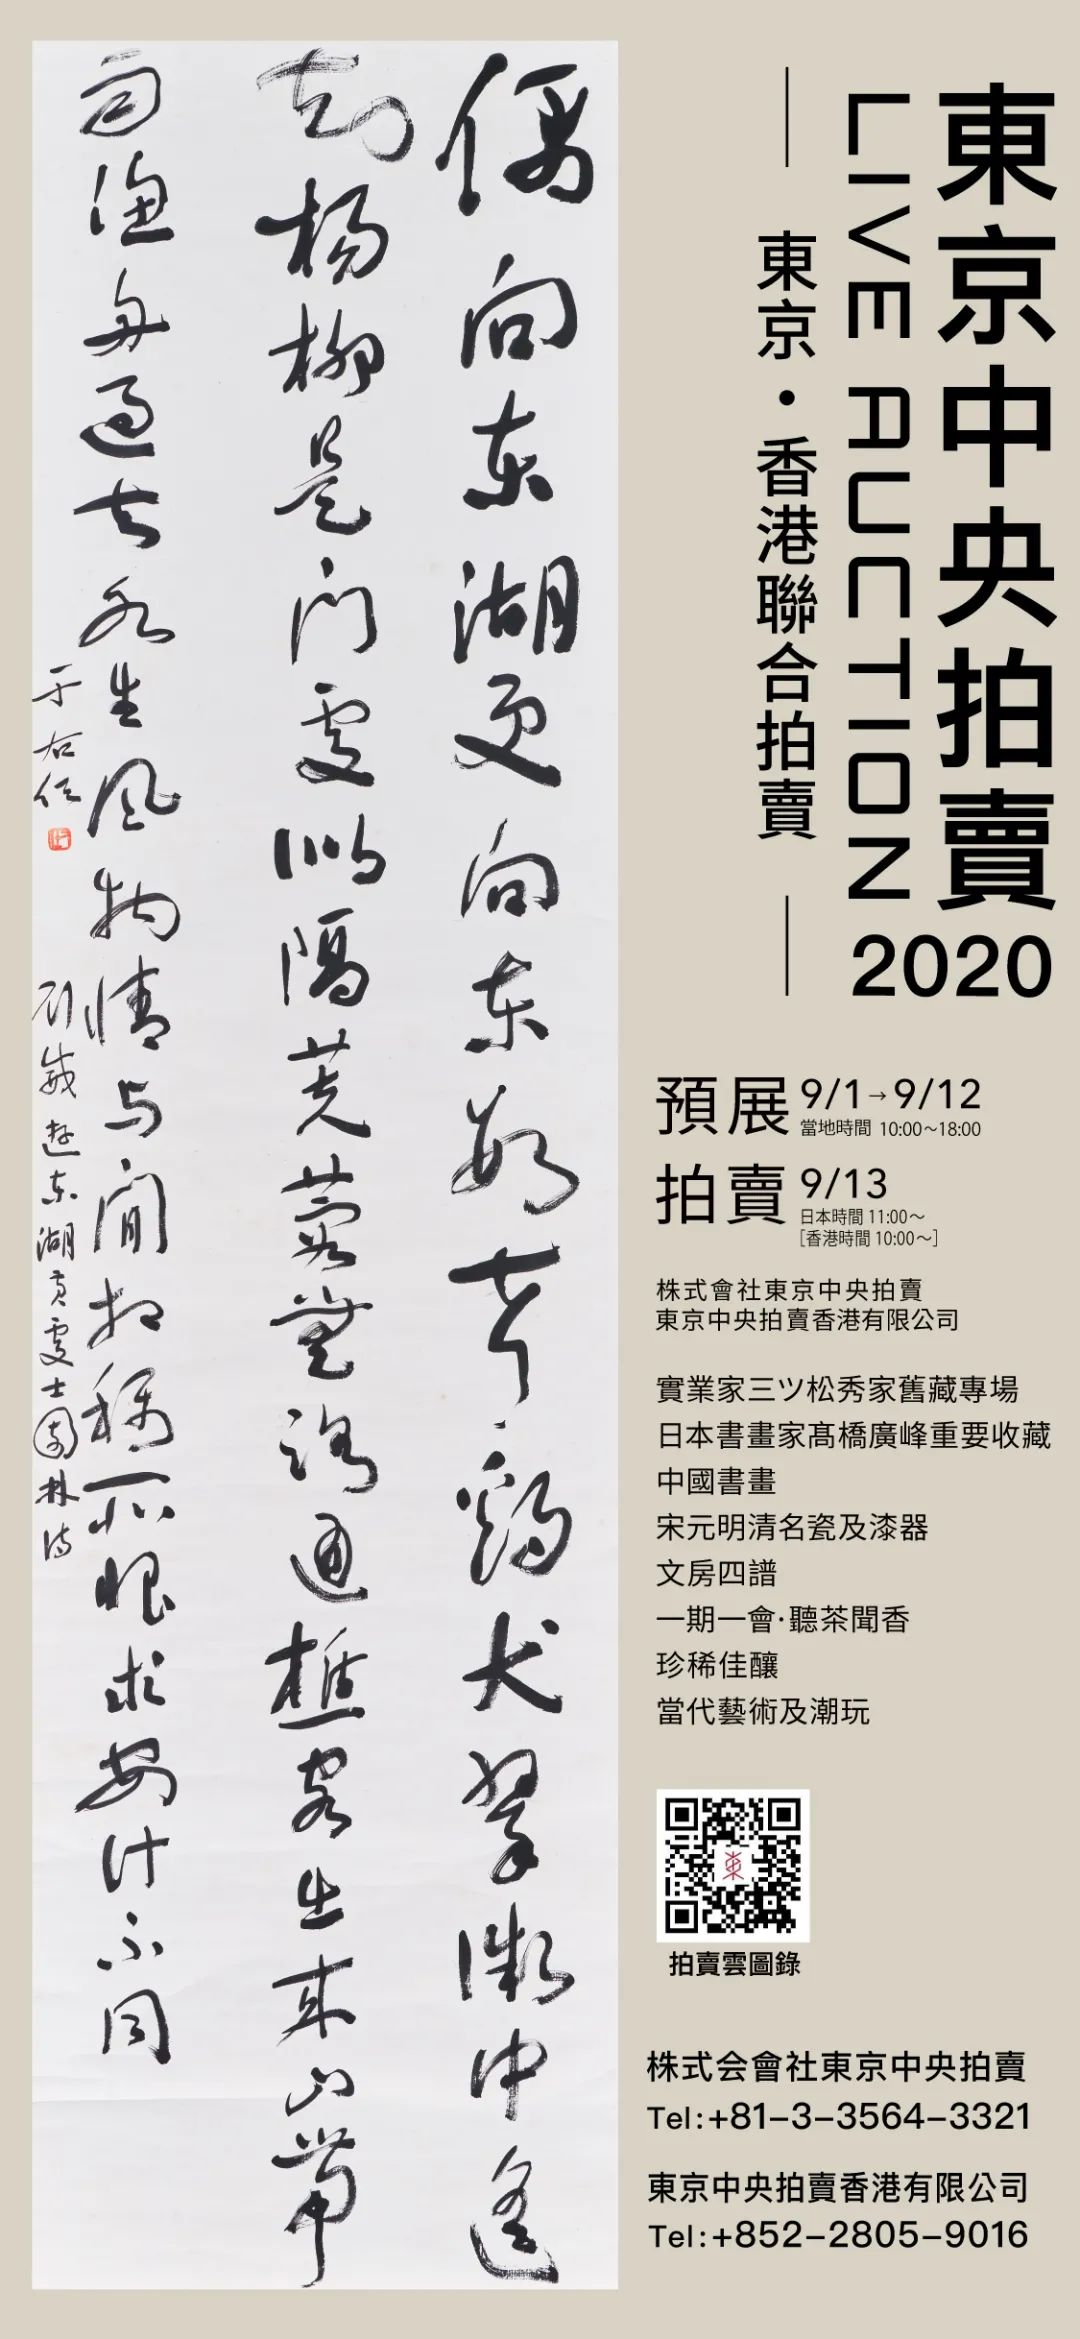 東京中央拍賣
LIVE AUCTION
2020
東京・香港聯合拍賣
偶向东湖更向东數声鷄犬翠微中遙
知楊柳是門處似隔芙蓉無路通樵客出來山帶
雨漁舟過去水生風物情与閒相稱所恨求安計不同
劉威遊东湖黃處士園林詩
于右任
預展 9/1→9/12
當地時間 10:00～18:00
拍賣 9/13
日本時間 11:00～
[香港時間 10:00～]
株式會社東京中央拍賣
東京中央拍賣香港有限公司
實業家三ツ松秀家舊藏專場
日本書畫家髙橋廣峰重要收藏
中國書畫
宋元明清名瓷及漆器
文房四譜
一期一會·聽茶聞香
珍稀佳釀
當代藝術及潮玩
東
拍賣雲圖錄
株式会會社東京中央拍賣
Tel:+81-3-3564-3321
東京中央拍賣香港有限公司
Tel:+852-2805-9016